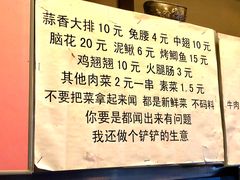 蒜香大排10元 兔腰4元 中翅10元
脑花20元 泥鳅6元 烤鲫鱼15元
鸡翘翘10元 火腿肠3元
其他肉菜2元一串 素菜1.5元
不要把菜拿起来闻 都是新鲜菜 不码料
你要是都闻出来有问题
我还做个铲铲的生意
牛肉